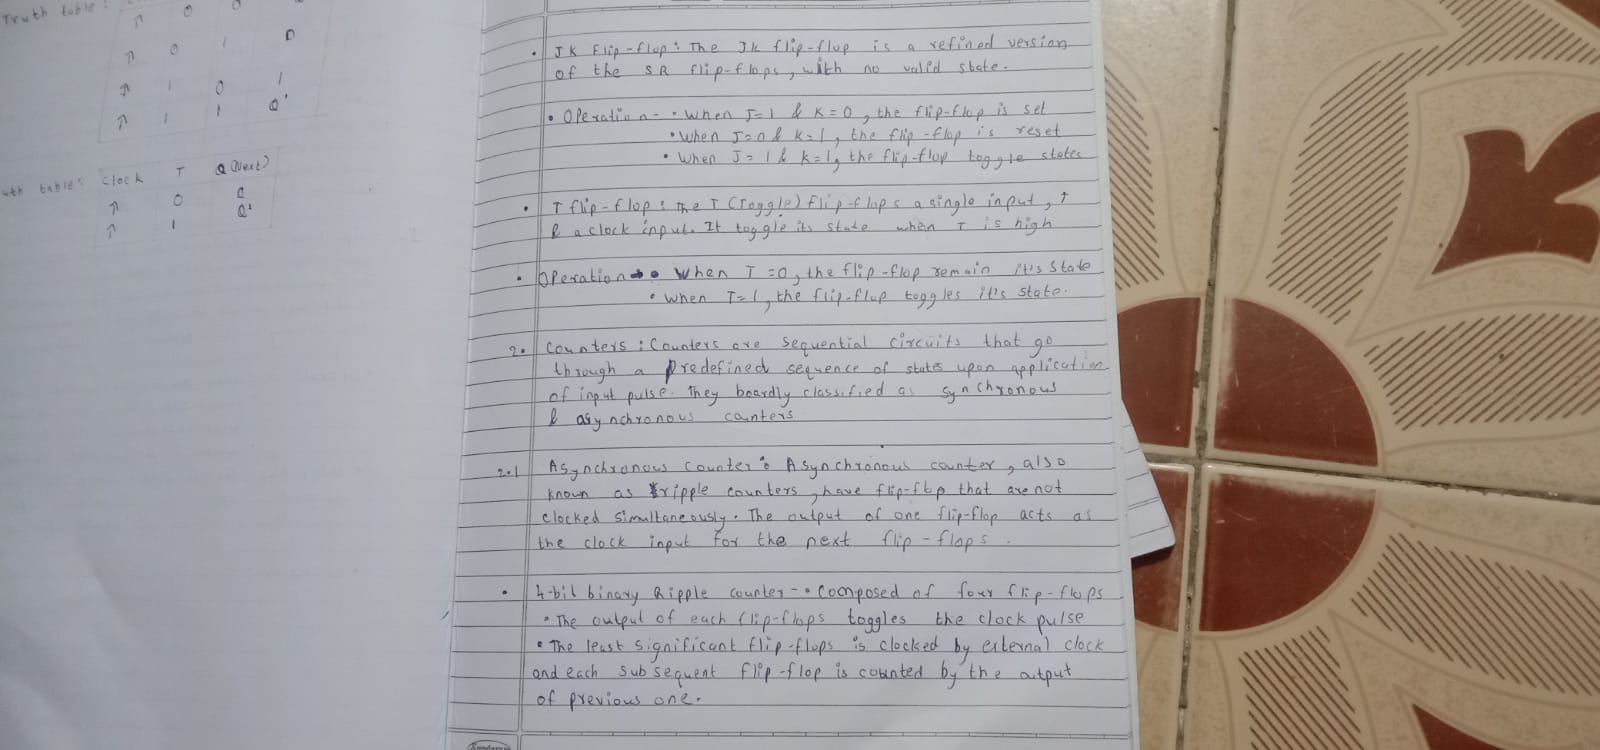 Truth table:
↑ 0 0
↑ 0 1 0
↑ 1 0 1
↑ 1 1 Q'
table: Clock T Q (Next)
↑ 0 Q
↑ 1 Q'
• JK Flip-flop: The Jk flip-flop is a refined version
of the SR flip-flops, with no valid state.
• Operation- • When J=1 & K=0, the flip-flop is set
• When J=0 & k=1, the flip-flop is reset
• When J=1 & k=1, the flip-flop toggle states
• T flip-flop: The T (Toggle) flip-flops a single input, T
& a clock input. It toggle its state when T is high
• Operation → • When T=0, the flip-flop remain it's state
• When T=1, the flip-flop toggles it's state.
2. Counters: Counters are sequential circuits that go
through a predefined sequence of states upon application
of input pulse. They boardly classified as synchronous
& asynchronous canters
2.1 Asynchronous Counter: Asynchronous counter, also
known as ripple counters, have flip-flop that are not
clocked simultaneously. The output of one flip-flop acts as
the clock input for the next flip-flops.
• 4-bit binary Ripple counter- • Composed of four flip-flops
• The output of each flip-flops toggles the clock pulse
• The least significant flip-flops is clocked by external clock
and each subsequent flip-flop is counted by the output
of previous one.